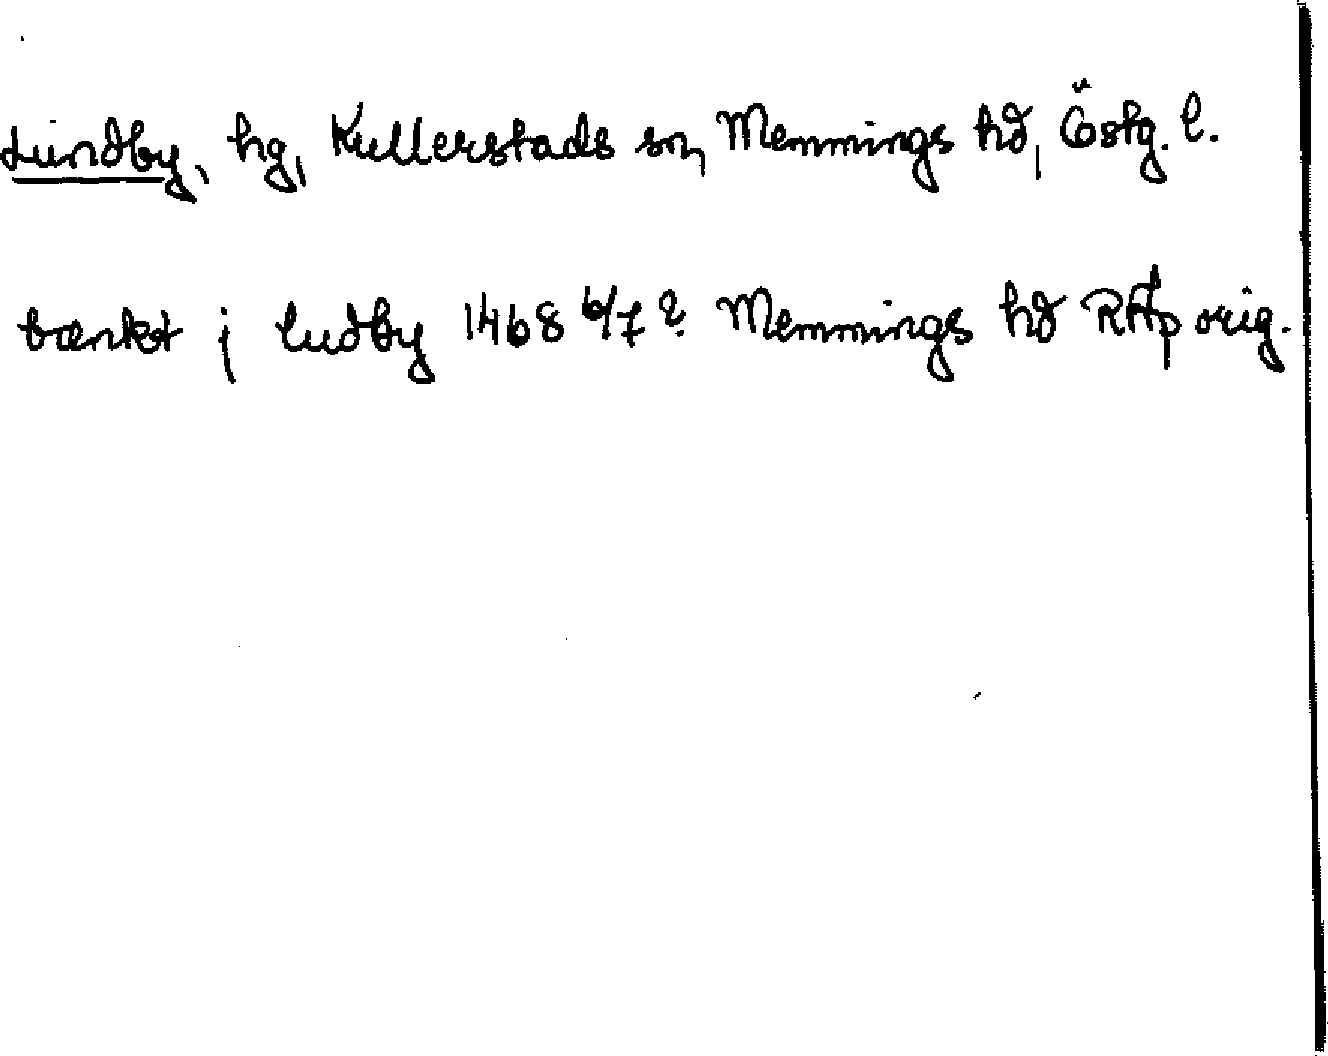 Lundby, hg, Kullerstads sn, Memmings hd, Östg. l.
bænkt j ludby 1468 6/7 ? Memmings hd RAp orig.